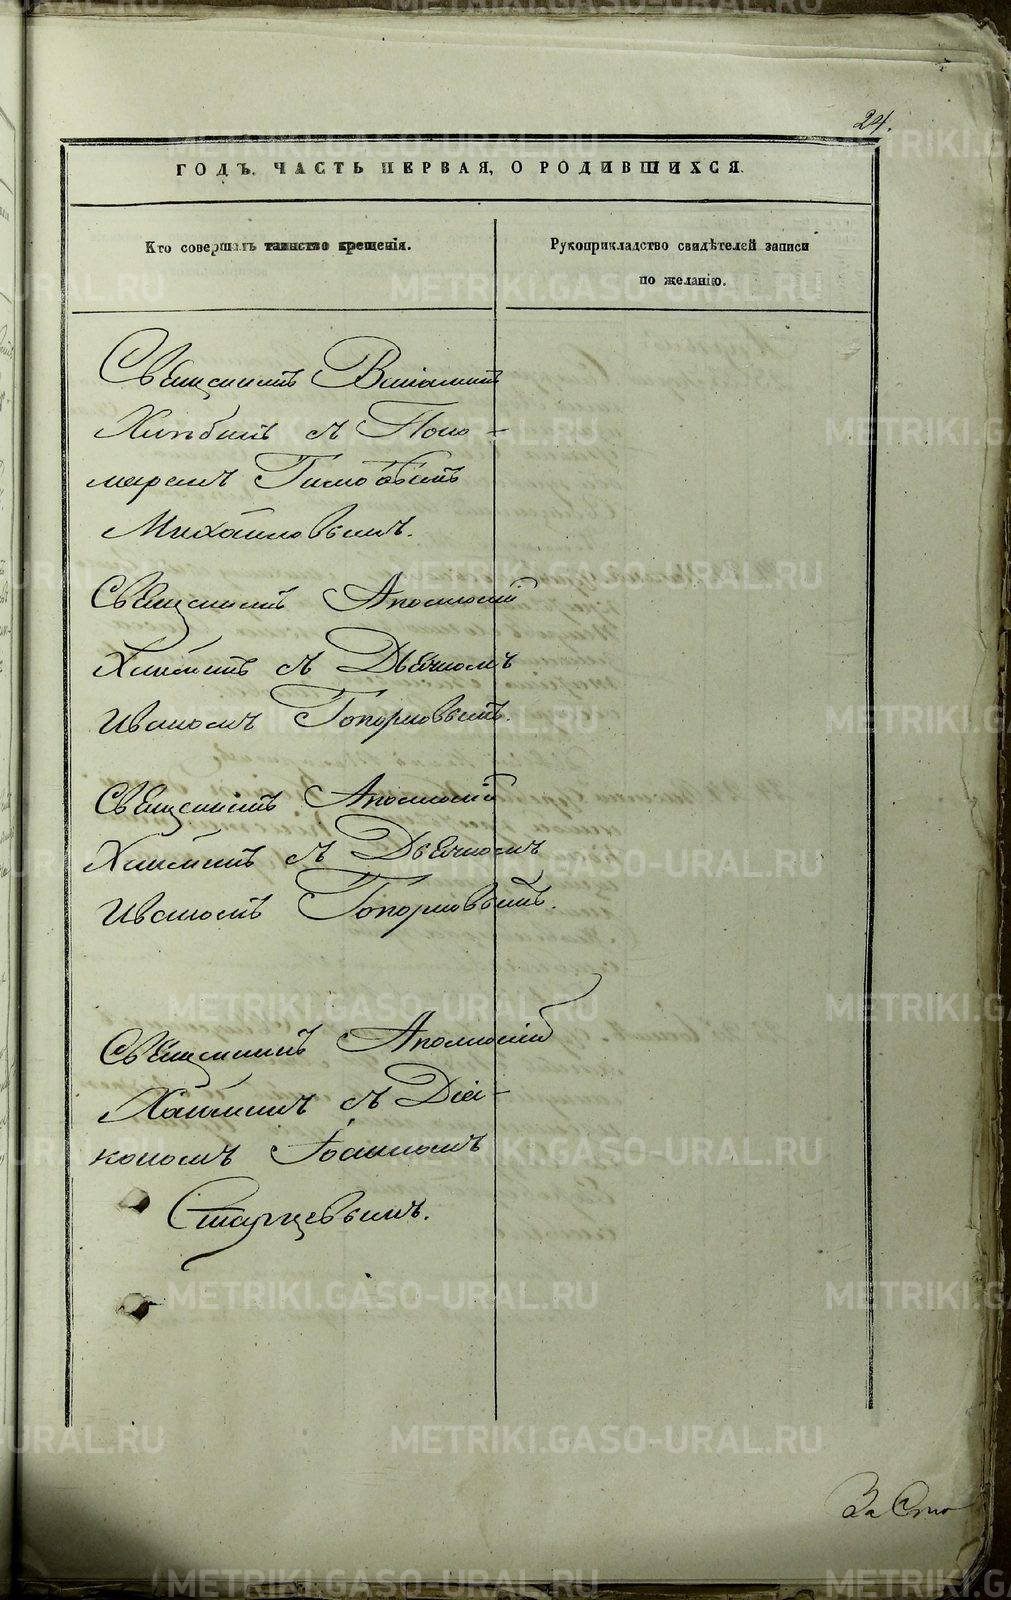 24.
ГОДЪ. ЧАСТЬ ПЕРВАЯ, О РОДИВШИХСЯ.
Кто совершалъ таинство крещенія.
Рукоприкладство свидѣтелей записи
по желанію.
Священникъ Веніаминъ
съ Поно-
маремъ
Михайловымъ.
Священникъ Аполлоній
съ Дьячкомъ
Иваномъ Топорковымъ.
Священникъ Аполлоній
съ Дьячкомъ
Иваномъ Топорковымъ.
Священникъ Аполлоній
съ Діа-
кономъ Іоанномъ
Старцевымъ.
METRIKI.GASO-URAL.RU